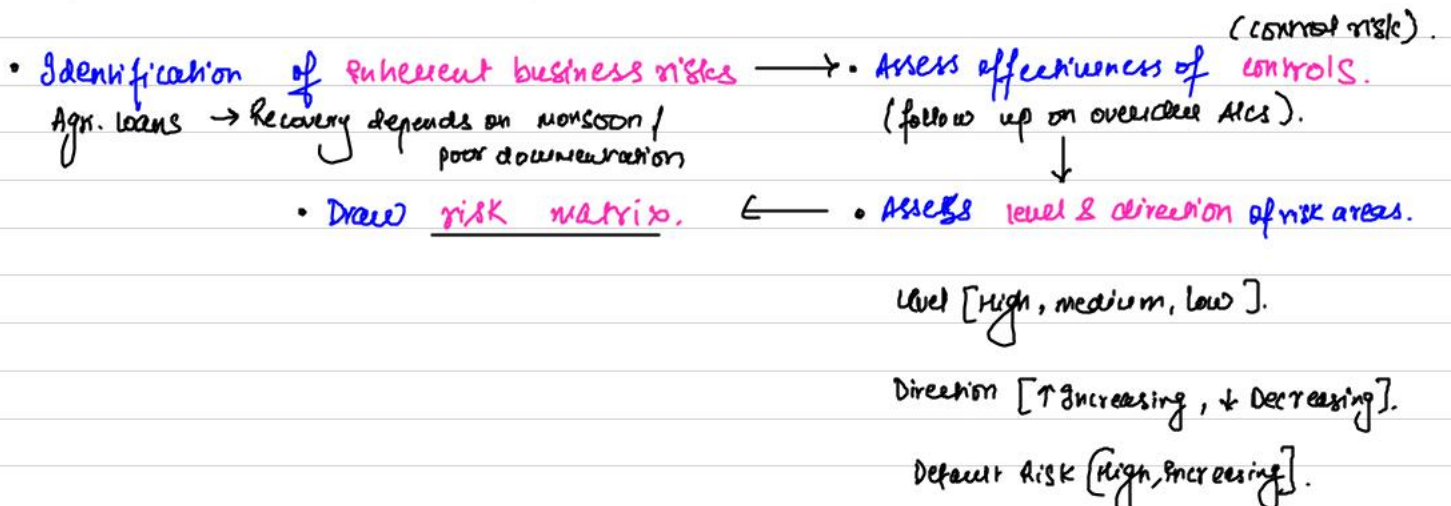 (control risk).
• Identification of inherent business risks → • Assess effectiveness of controls.
Agr. loans → Recovery depends on monsoon / (follow up on overdue A/cs).
poor documentation ↓
• Draw risk matrix. ← • Assess level & direction of risk areas.
Level [High, medium, low].
Direction [↑ Increasing, ↓ Decreasing].
Default Risk [High, Increasing].